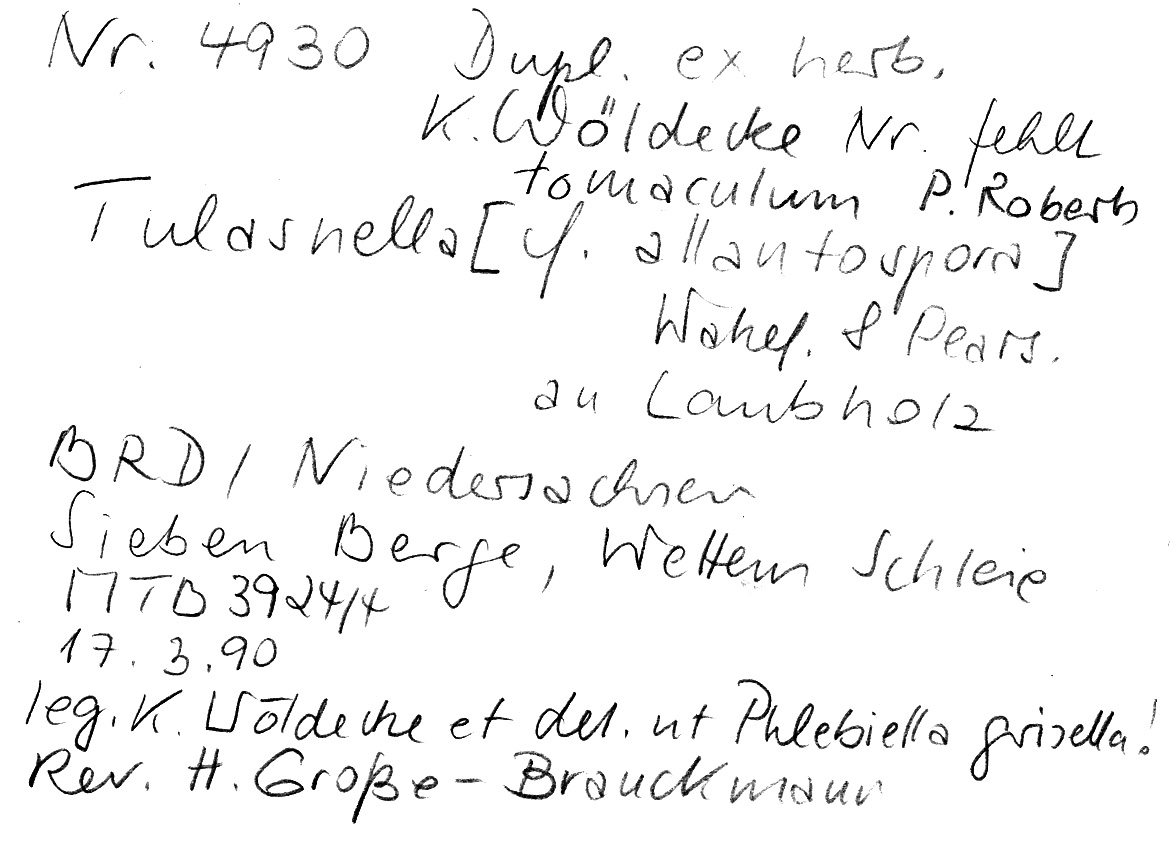 Nr. 4930 Dupl. ex herb.
K. Wöldecke Nr. fehlt
tomaculum P. Roberts
Tulasnella [cf. allantospora]
Wakef. & Pears.
an Laubholz
BRD / Niedersachsen
Sieben Berge, Wettem Schleie
MTB 3924/4
17.3.90
leg. K. Wöldecke et det. ut Phlebiella grisella!
Rev. H. Große-Brauckmann